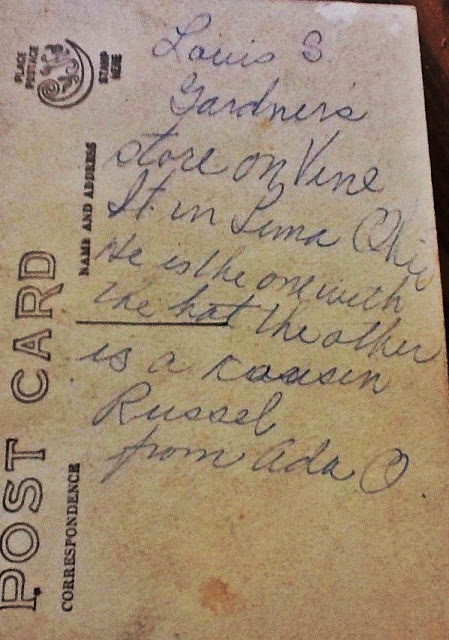 Louis S
Gardner's
store on Vine
St. in Lima Ohio
He is the one with
the hat the other
is a cousin
Russel
from Ada O.
POST CARD
CORRESPONDENCE
NAME AND ADDRESS
PLACE
POSTAGE
STAMP
HERE